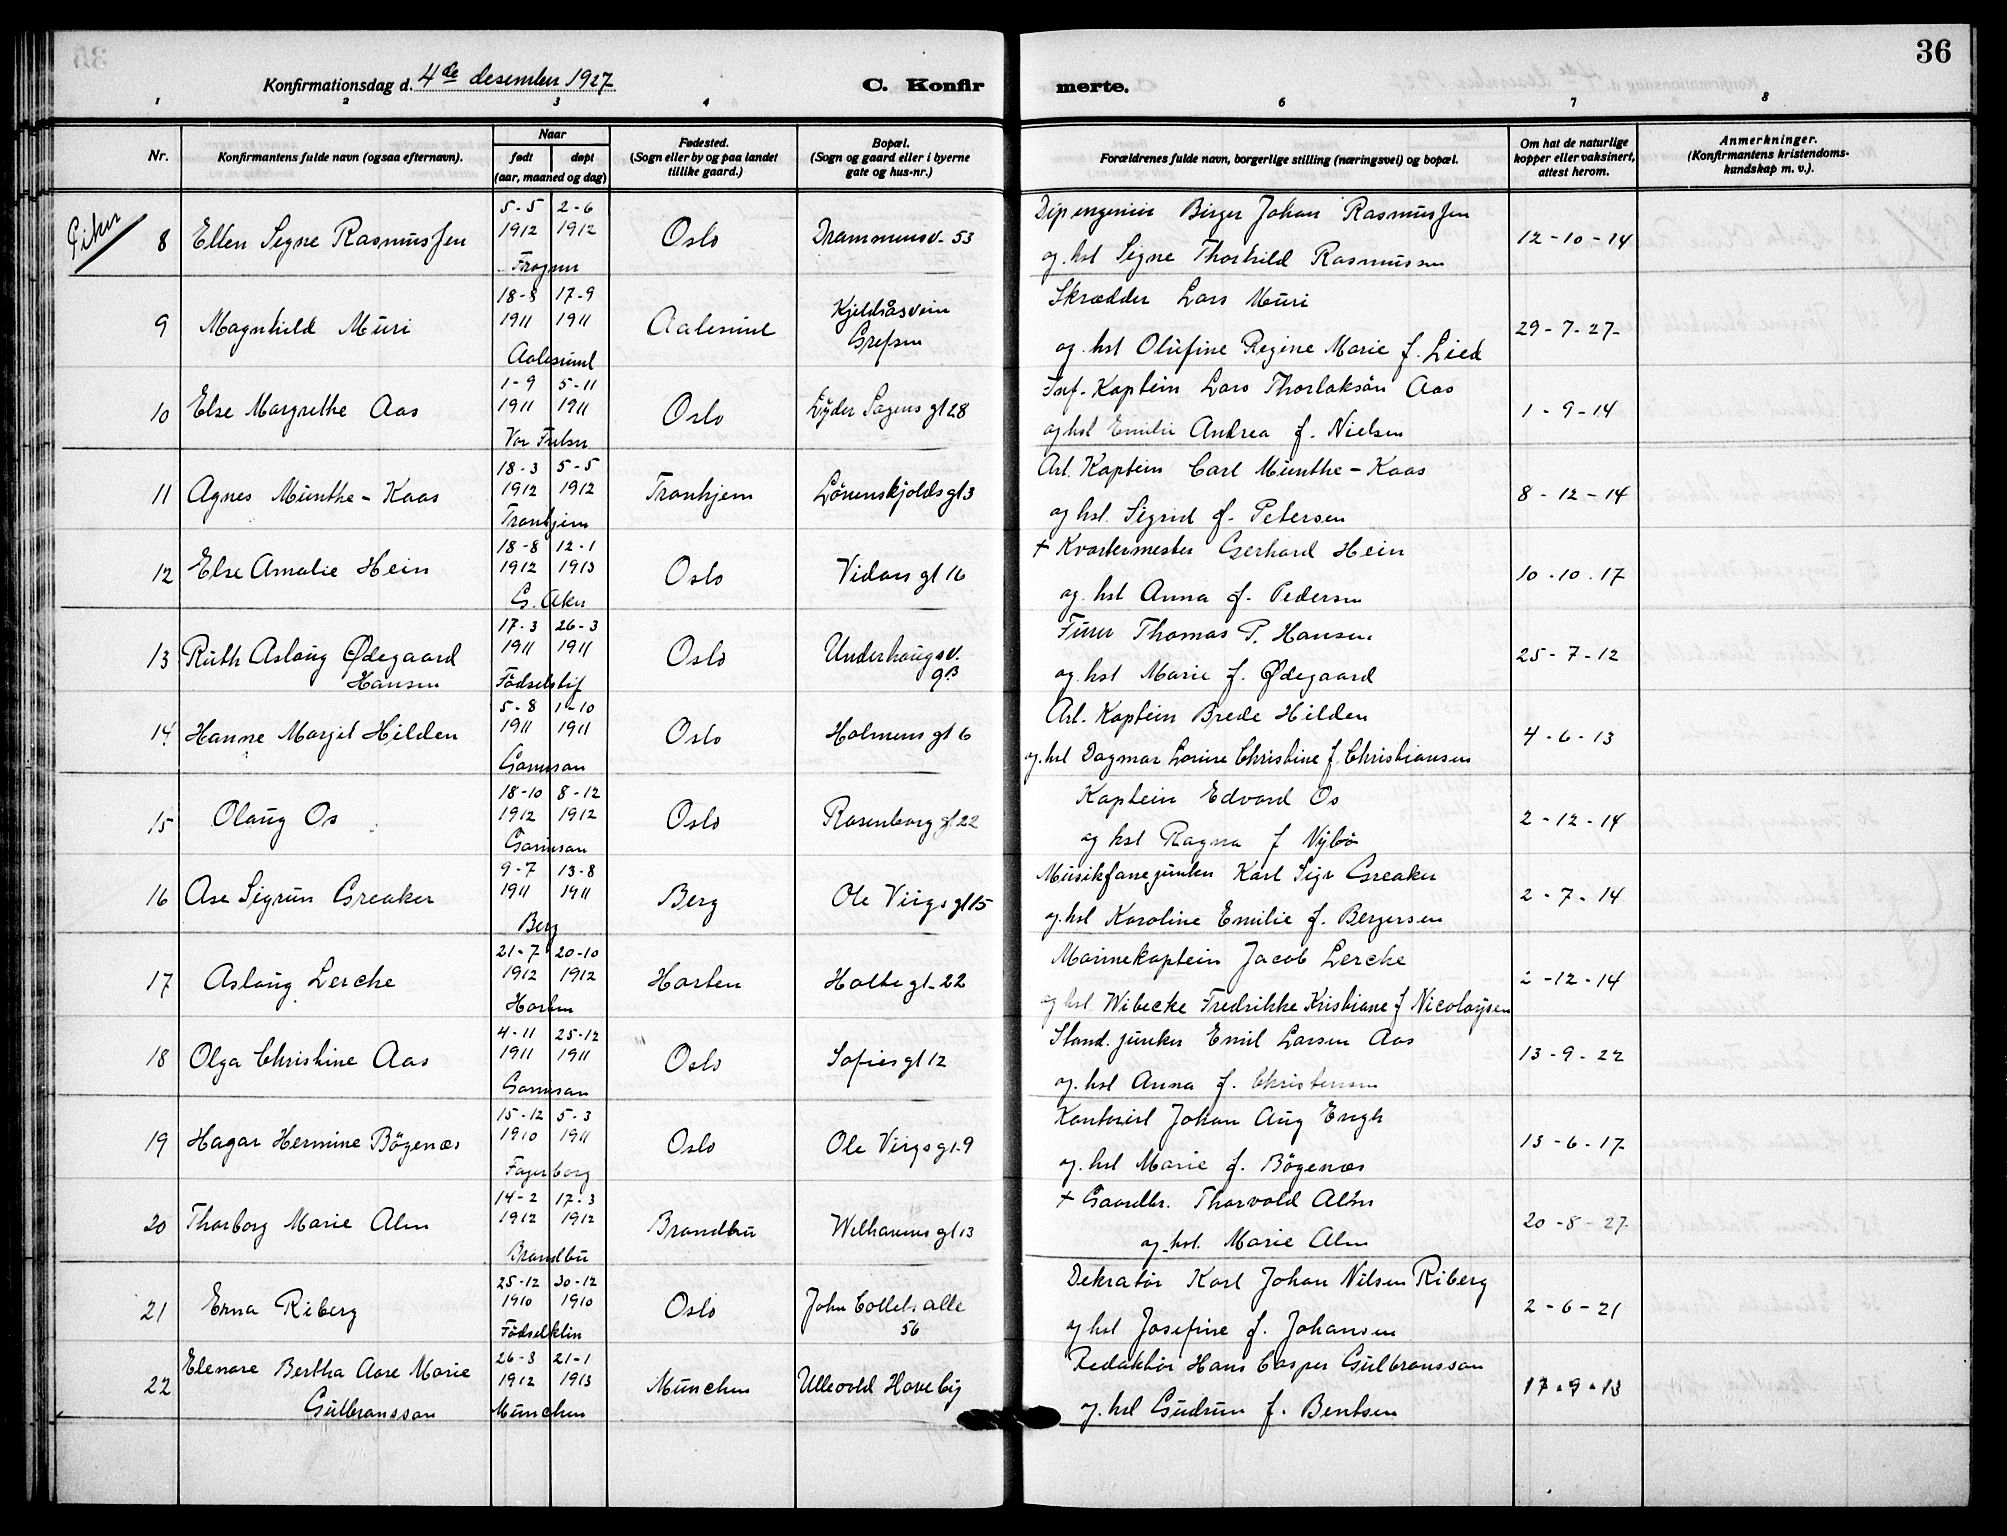 36
Konfirmationsdag d. 4de desember 1927
C. Konfir merte.
1 2 3 4 6 7 8
Nr.
Konfirmantens fulde navn (ogsaa efternavn).
Naar
født døpt
(aar, maaned og dag)
Fødested.
(Sogn eller by og paa landet
tillike gaard.)
Bopæl.
(Sogn og gaard eller i byerne
gate og hus-nr.)
Forældrenes fulde navn, borgerlige stilling (næringsvei) og bopæl.
Om hat de naturlige
kopper eller vaksinert,
attest herom.
Anmerkninger.
(Konfirmantens kristendoms-
kundskap m. v.).
Piker
5-5 2-6 Dipengeniør Birger Johan Rasmussen
8 Ellen Signe Rasmussen 1912 1912 Oslo Drammensv. 53 12-10-14
Frogner og hst Signe Thorhild Rasmussen
18-8 17-9 Kjeldsåsvein Skrædder Lars Muri
9 Magnhild Muri 1911 1911 Aalesund Grefsen 29-7-27
Aalesund og hst Olufine Regine Marie f. Lied
1-9 5-11 Inf. Kaptein Lars Thorlaksøn Aas
10 Else Margrethe Aas 1911 1911 Oslo Lyder Sagens gt 28 1-9-14
Vor Frelser og hst Emilie Andrea f. Nielsen
18-3 5-5 Art. Kaptein Carl Munthe-Kaas
11 Agnes Munthe-Kaas 1912 1912 Tronhjem Lövenskjolds gt 3 8-12-14
Tronhjem og hst. Sigrid f. Petersen
18-8 12-1 + Kvartermester Gerhard Hein
12 Else Amalie Hein 1912 1913 Oslo Vidars gt 16 10.10.17
G. Aker og hst Anna f. Pedersen
17-3 26-3 Furer Thomas P. Hansen
13 Ruth Aslaug Ødegaard 1911 1911 Oslo Underhaugsv. 25-7-12
Hansen Födselstif 9B og hst Marie f. Ødegaard
5-8 1-10 Art. Kaptein Brede Hilden
14 Hanne Margit Hilden 1911 1911 Oslo Holmens gt 6 4-6-13
Garnison og hst Dagmar Lovise Christine f. Christiansen
18-10 8-12 Kaptein Edvard Os
15 Olaug Os 1912 1912 Oslo Rosenborg gt 22 2-12-14
Garnison og hst Ragna f Nybö
9-7 13-8 Musikfanejunker Karl Sigv Greaker
16 Ase Sigrun Greaker 1911 1911 Berg Ole Vigs gt 15 2-7-14
Berg og hst Karoline Emilie f. Bergersen
21-7 20-10 Marinekaptein Jacob Lerche
17 Aslaug Lerche 1912 1912 Horten Holte gt. 22 2-12-14
Horten og hst Wibecke Fredrikke Kristiane f Nicolaysen
4-11 25-12 Stand. junker Emil Larsen Aas
18 Olga Christine Aas 1911 1911 Oslo Sofies gt 12 13-9-22
Garnison og hst Anna f. Christensen
15-12 5-3 Kontorist Johan Aug Engh
19 Hagar Hermine Bögenæs 1910 1911 Oslo Ole Vigs gt. 9 13-6-17
Fagerborg og hst Marie f. Bögenæs
14-2 17-3 + Gaardbr. Thorvald Alm
20 Thorborg Marie Alm 1912 1912 Brandbu Welhavens gt 13 20-8-27
Brandbu og hst. Marie Alm
25-12 30-12 Dekratör Karl Johan Nilsen Riberg
21 Erna Riberg 1910 1910 Oslo John Colletts alle 2-6-21
Födselsklin 56 og hst Josefine f. Johansen
26-3 21-1 Redaktör Hans Casper Gulbransson
22 Elenore Bertha Aase Marie 1912 1913 München Ullevold Haveby 17-9-13
Gulbransson München og hst Gudrun f. Bentsen